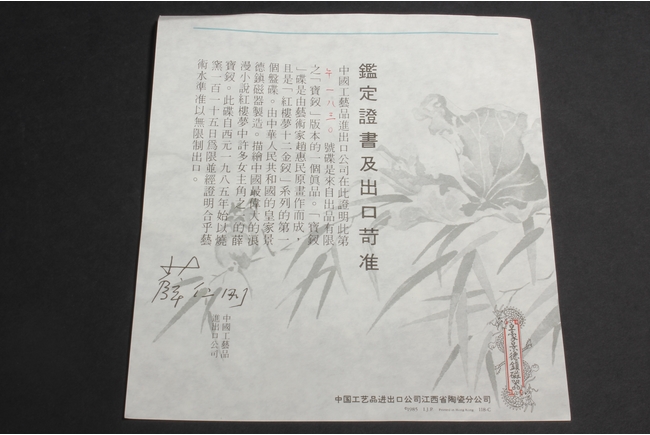 鑑定證書及出口苛准
中國工藝品進出口公司在此證明此第
午一八三〇號碟是來自出品有限
之「寶釵」版本的一個眞品。「寶釵
」碟是由藝術家趙惠民原畫作而成，
且是「紅樓夢十二金釵」系列的第一
個盤碟。由中華人民共和國的皇家景
德鎮磁器製造。描繪中國最偉大的浪
漫小說紅樓夢中許多女主角之一的薛
寶釵。此碟自西元一九八五年始以燒
窯一百一十五日爲限並經證明合乎藝
術水準准以無限制出口。
中國工藝品
進出口公司
皇家景德鎮磁器
中国工艺品进出口公司江西省陶瓷分公司